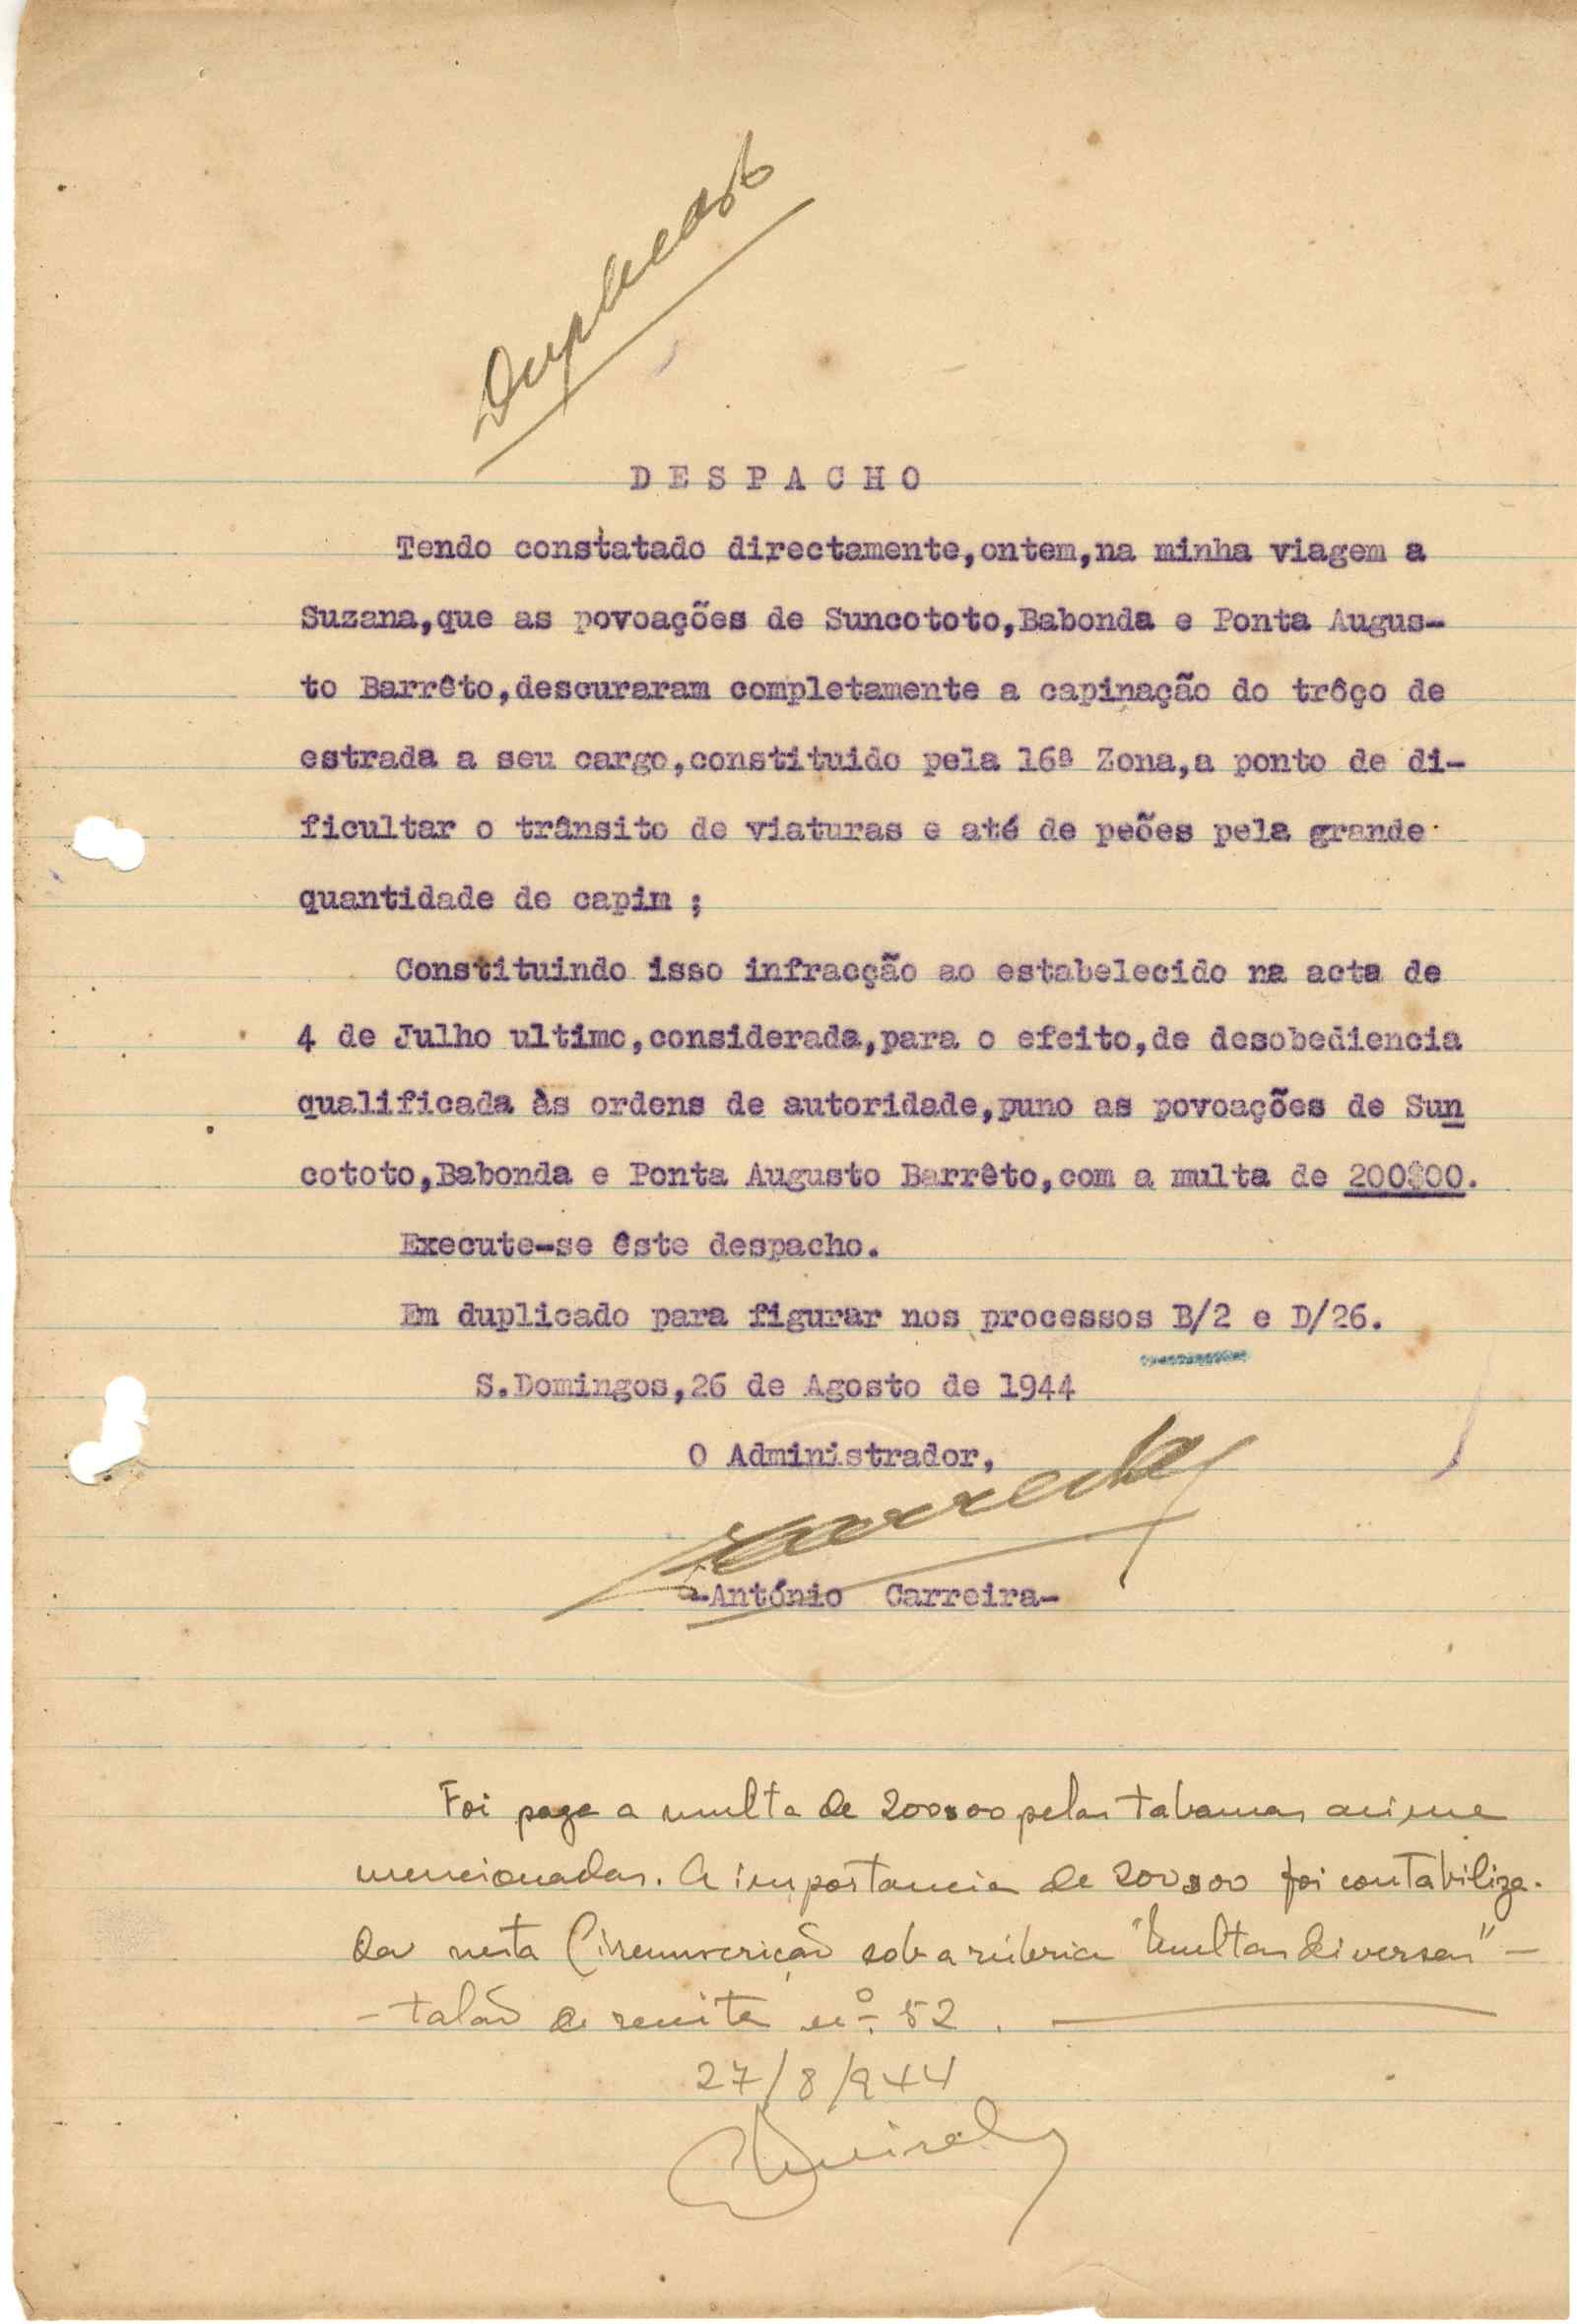 Duplicado
DESPACHO
Tendo constatado directamente,ontem,na minha viagem a
Suzana,que as povoações de Suncototo,Babonda e Ponta Augus-
to Barrêto,descuraram completamente a capinação do trôço de
estrada a seu cargo,constituido pela 16ª Zona,a ponto de di-
ficultar o trânsito de viaturas e até de peões pela grande
quantidade de capim ;
Constituindo isso infracção ao estabelecido na acta de
4 de Julho ultimo,considerada,para o efeito,de desobediencia
qualificada às ordens de autoridade,puno as povoações de Sun
cototo,Babonda e Ponta Augusto Barrêto,com a multa de 200$00.
Execute-se êste despacho.
Em duplicado para figurar nos processos B/2 e D/26.
S.Domingos,26 de Agosto de 1944
O Administrador,
-António Carreira-
Foi paga a multa de 200$00 pelas tabancas acima
mencionadas. A importancia de 200$00 foi contabiliza-
da nesta Circunscrição sob a rúbrica "Multas diversas" -
- talão de receita nº. 52 .
27/8/944